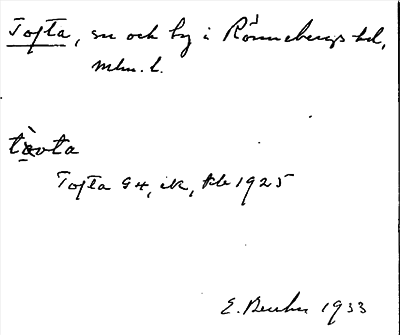 Tofta, sn och by i Rönnebergs hd,
Mlm. l.
tòvta
Tofta G4, ek, fle 1925
E. 1933